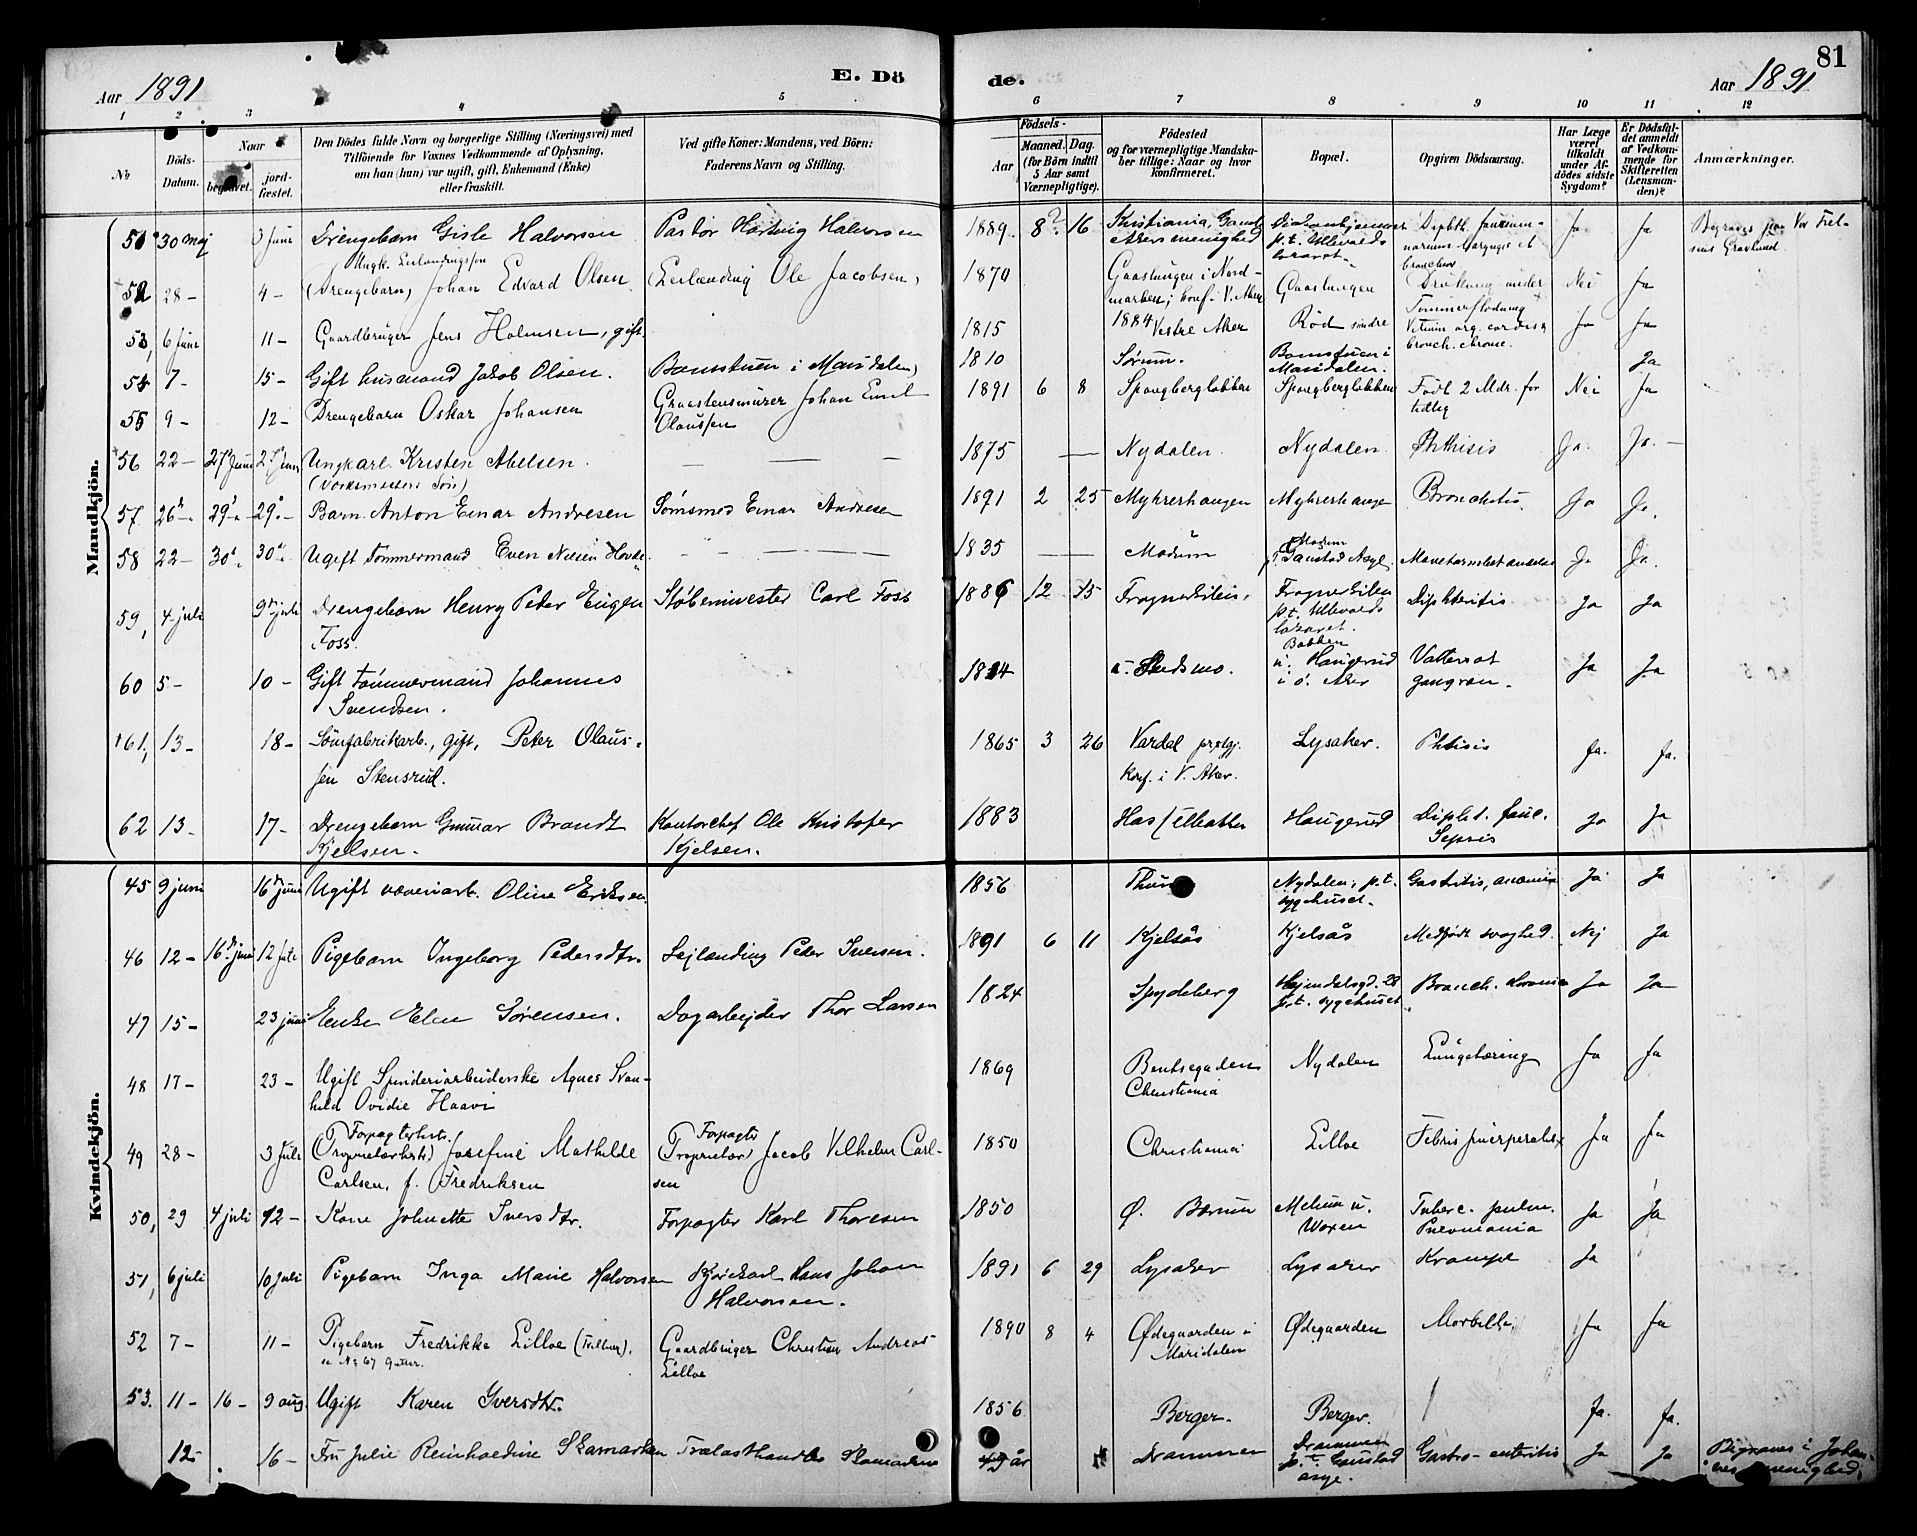 81
Aar 1891
E. Dö
de.
Aar 1891
1 2 3 4 5 6 7 8 9 10 11 12
No
Döds-Datum.
Naar
begravet.
jordfæstet.
Den Dödes fulde Navn og borgerlige Stilling (Næringsvei) med
Tilföiende for Voxnes Vedkommende af Oplysning,
om han (hun) var ugift, gift, Enkemand (Enke)
eller fraskilt.
Ved gifte Koner: Mandens, ved Börn:
Faderens Navn og Stilling.
Födsels-
Aar
Maaned. Dag.
(for Börn indtil
5 Aar samt
Værnepligtige).
Födested
og for værnepligtige Mandska-
ber tillige: Naar og hvor
konfirmeret.
Bopæl.
Opgiven Dödsaarsag.
Har Læge
været
tilkaldt
under Af-
dödes sidste
Sygdom?
Er Dödsfal-
det anmeldt
af Vedkom-
mende for
Skifteretten
(Lensman-
den)?
Anmærkninger.
Mandkjön.
51 30 maj 3 Juni Drengebarn Gisle Halvorsen Pastor Hartvig Halvorsen 1889 8? 16 Kristiania, Gamle Akers menighed p.t. Ullevaals lazaret Ja Ja
52 28 - 4 - Ungk. (Drengebarn) Johan Edvard Olsen (Leilænding Ole Jacobsen) 1870 Gaaslungen i Nordmarken; konf. V. Aker 1884 Gaaslungen Drukning under Tømmerflødning Nei Ja
53, 6 Juni 11 - Gaardbruger Jens Holmsen, gift 1815 Vestre Aker Rød søndre Vitium org. cordis & bronch. chronic. Ja Ja
54 7 - 15 - Gift husmand Jakob Olsen. Bomstuen i Maridalen 1810 Sørum. Bomstuen i Maridalen. Ja
55 9 - 12 - Drengebarn Oskar Johansen Graastensmurer Johan Emil Olaussen 1891 6 8 Spangbergløkken Spangbergløkken Født 2 Mdr. for tidlig Nei Ja
56 22 - 27 Juni 27 Juni Ungkarl Kristen Abelsen. (Værksmesters Søn) — — — 1875 — Nydalen. Nydalen. Phthisis Ja. Ja. —
57. 26 - 29 - 29 - Barn. Anton Einar Andresen Sømsmed Einar Andresen 1891 2 25 Myhrerhaugen Myhrerhaugen Bronchitis Ja Ja.
58 22 - 30 - 30 - Ugift Tømmermand Even Nilsen Hovde. — — — 1835 — Modum Modum p.t. Gaustad Asyl. Ja Ja.
59, 4 juli 9 juli Drengebarn Henry Peter Eugen Foss. Støbemester Carl Foss 1886 12 15 Frognerkilen, Frognerkilen p.t. Ullevaals lazaret. Diphteritis Ja Ja
60 5 - 10 - Gift Tømmermand Johannes Svendsen. 1814 Skedsmo. Bakken u. Haugerud i Ø. Aker Vattersot gangræn. Ja Ja
61, 13 - 18 - Sømfabrikarb., gift, Peter Olaussen Stensrud. 1865 3 26 Vardal prestgj. Konf. i V. Aker. Lysaker. Phtisis Ja. Ja.
62 13 - 17 - Drengebarn Gunnar Brandt Kjelsen. Kontorchef Ole Kristofer Kjelsen. 1883 Haugerud Dipht. fauc. Sepsis Ja Ja
Kvindekjön.
45 9 juni 16 juni Ugift væveriarb. Oline Eriksen 1856 Nydalen, p.t. sygehuset. Gastritis, anæmia Ja Ja
46 12 - 16 juni 12 Juli Pigebarn Ingeborg Pedersdtr. Lejlænding Peder Iversen. 1891 6 11 Kjelsås Kjelsås Medfødt svaghed. Nej Ja
47 15 - 23 juni Enke Elen Sørensen. Dagarbejder Thor Larsen 1824 Spydeberg p.t. sygehuset. Bronch. kronica Ja Ja
48 17 - 23 - Ugift Spinderiarbeiderske Agnes Svanhild Ovidie Haavi 1869 Bentsegaden Christiania Nydalen Lungetæring Ja Ja
49 28 - 3 Juli Forpagterhstr. (Proprietærhstr.) Josefine Mathilde Carlsen, f. Fredriksen Forpagter (Proprietær) Jacob Vilhelm Carlsen 1850 Christiania Lilloe Febris puerperalis Ja Ja
50, 29 4 juli 12 - Kone Johnette Iversdtr. Forpagter Karl Thoresen 1850 Ø. Bærum Melum u. Voxen Tuberc. pulm. Pneumonia Ja Ja
51, 6 juli 10 Juli Pigebarn Inga Marie Halvorsen Kjørekarl Hans Johan Halvorsen. 1891 6 29 Lysaker Lysaker Krampe Ja
52 7 - 11 - Pigebarn Fredrikke Lilloe (Tvilling). Gaardbruger Christian Andreas Lilloe 1890 8 4 Ødegaarden i Maridalen Ødegaarden Morbilli, Ja Ja
53. 11 - 16 - 9 aug. Ugift Karen Iversdtr. 1856 Berger. Berger. Ja. Ja.
12 - 16 - Fru Julie Reinholdine Skamarken Trælasthandler Skamarken 49 år Drammen Drammen p.t. Gaustad asyl. Gastro-enteritis Ja Ja Begraves i Johannes menighed.